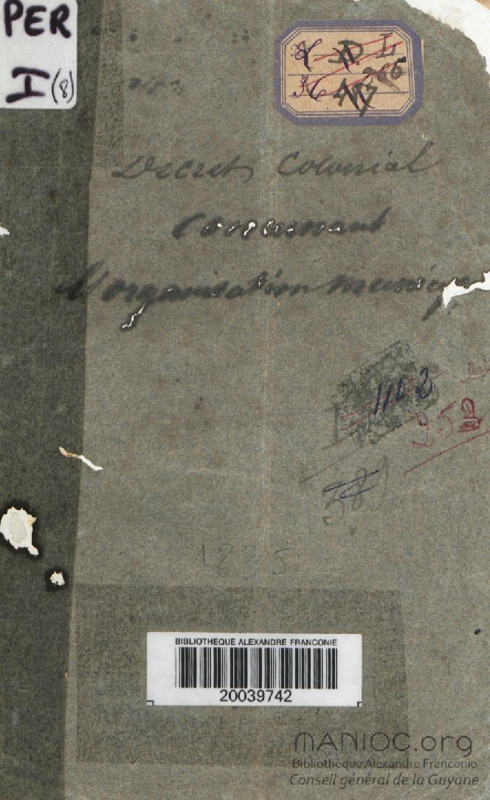 PER
I (8)
D L
265
Decret Colonial
Concernant
l'organisation municipa
1103
252
1835
BIBLIOTHEQUE ALEXANDRE FRANCONIE
20039742
MANIOC.org
Bibliothèque Alexandre Franconie
Conseil général de la Guyane